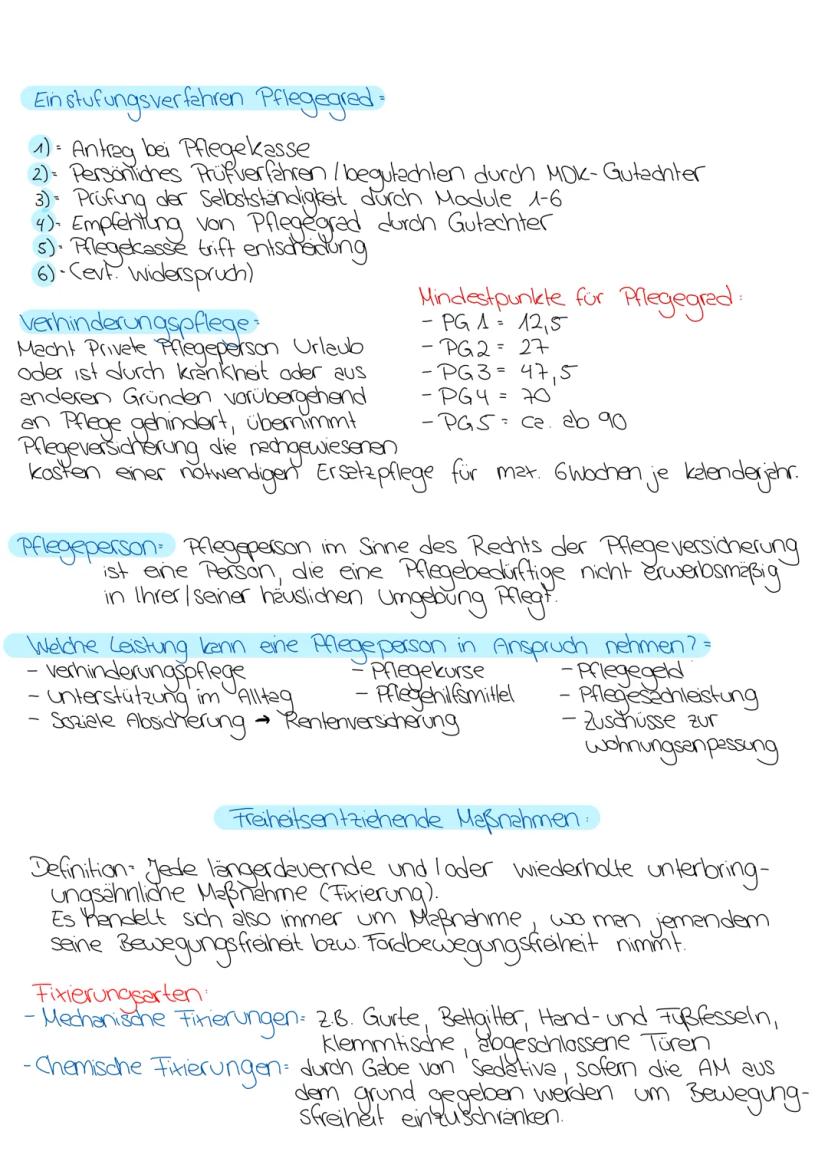 Einstufungsverfahren Pflegegrad=
1)= Antrag bei Pflegekasse
2)= Persönliches Prüfverfahren / begutachten durch MDK-Gutachter
3)= Prüfung der Selbstständigkeit durch Module 1-6
4)= Empfehlung von Pflegegrad durch Gutachter
5)= Pflegekasse trift entscheidung
6)= (evt. Widerspruch)
Mindestpunkte für Pflegegrad:
- PG 1 = 12,5
- PG 2 = 27
- PG 3 = 47,5
- PG 4 = 70
- PG 5 = ca. ab 90
Verhinderungspflege=
Macht Private Pflegeperson Urlaub
oder ist durch krankheit oder aus
anderen Gründen vorübergehend
an Pflege gehindert, übernimmt
Pflegeversicherung die nachgewiesenen
kosten einer notwendigen Ersatzpflege für max. 6 Wochen je kalenderjahr.
Pflegeperson= Pflegeperson im Sinne des Rechts der Pflegeversicherung
ist eine Person, die eine Pflegebedürftige nicht erwerbsmäßig
in Ihrer / seiner häuslichen Umgebung Pflegt.
Welche Leistung kann eine Pflegeperson in Anspruch nehmen? =
- Verhinderungspflege
- unterstützung im Alltag
- Soziale Absicherung → Rentenversicherung
- Pflegekurse
- Pflegehilfsmittel
- Pflegegeld
- Pflegesachleistung
- Zuschüsse zur
wohnungsanpassung
Freiheitsentziehende Maßnahmen:
Definition= Jede längerdauernde und / oder wiederholte unterbring-
ungsähnliche Maßnahme (Fixierung).
Es handelt sich also immer um Maßnahme, wo man jemandem
seine Bewegungsfreiheit bzw. Fordbewegungsfreiheit nimmt.
Fixierungsarten:
- Mechanische Fixierungen= z.B. Gurte, Bettgitter, Hand- und Fußfesseln,
Klemmtische, abgeschlossene Türen
- Chemische Fixierungen= durch Gabe von Sedativa, sofern die AM aus
dem grund gegeben werden um Bewegung-
sfreiheit einzuschränken.